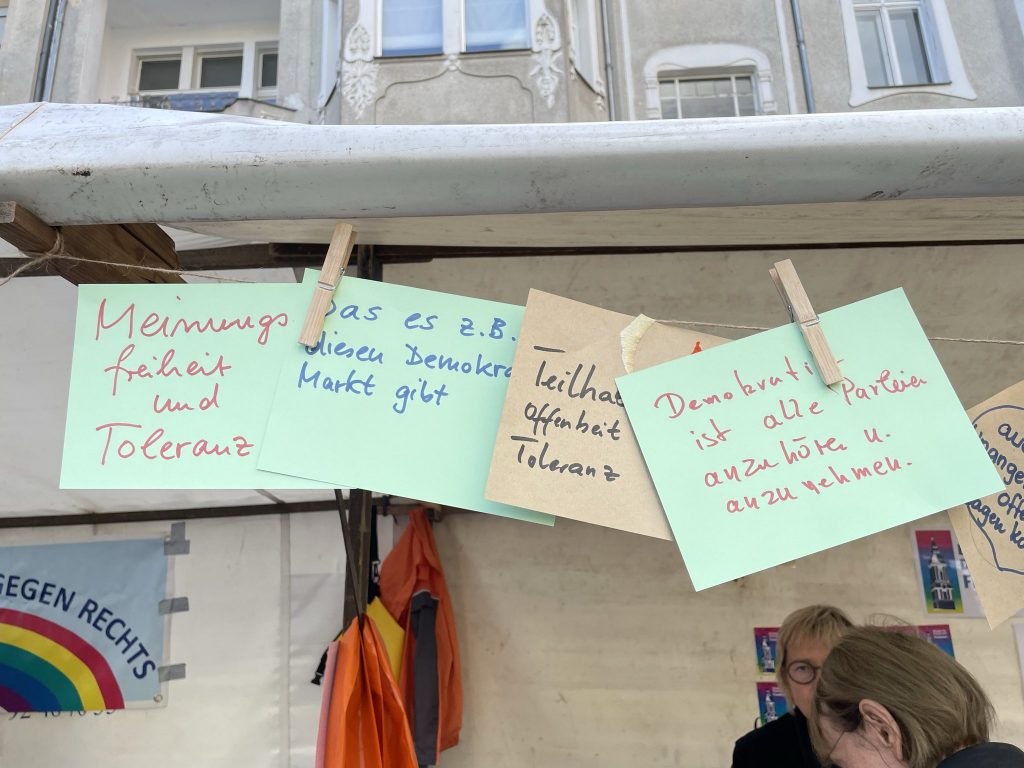 Meinungs
freiheit
und
Toleranz
Das es z.B.
diesen Demokra
Markt gibt
Teilha
offenheit
Toleranz
Demokrati
ist alle Parteien
anzuhören u.
anzunehmen.
GEGEN RECHTS